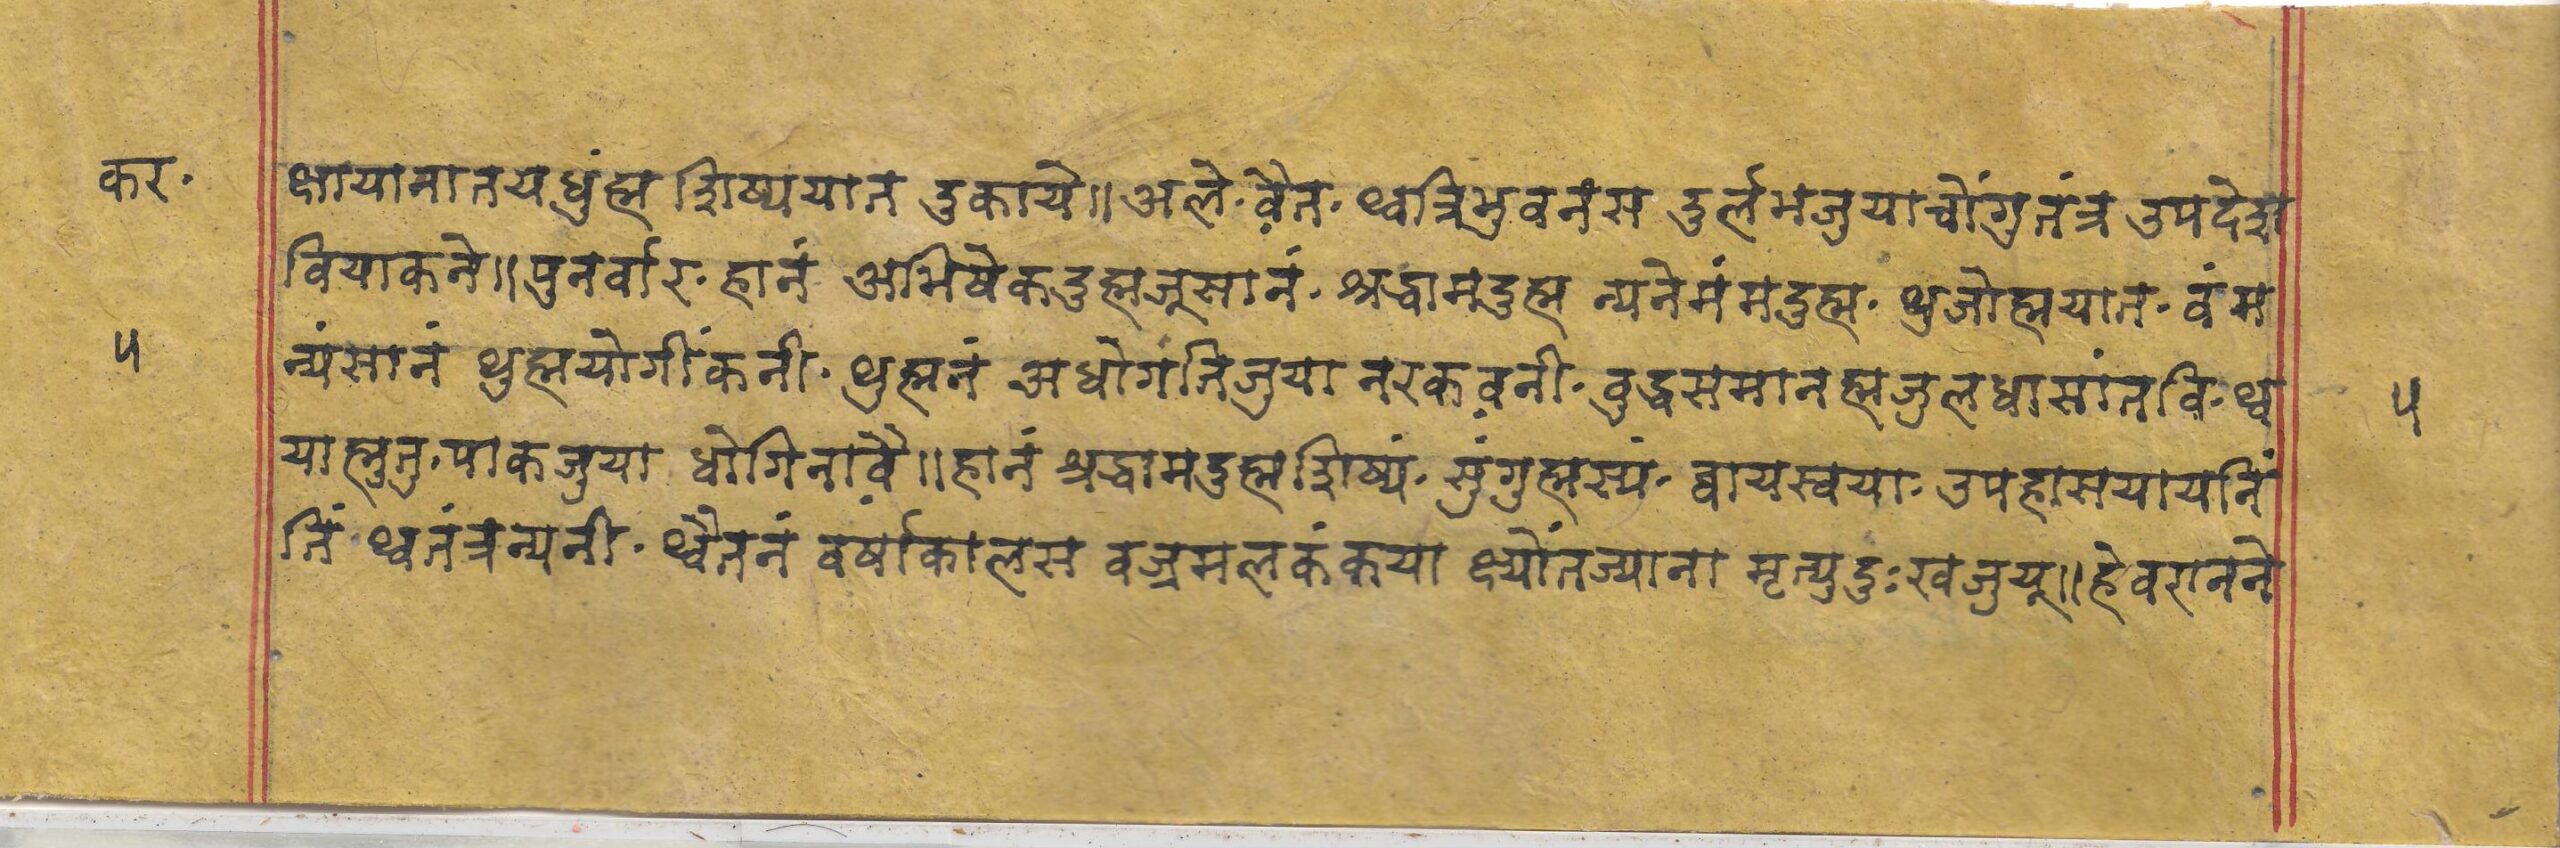 कर॰ क्षायानातयधुंह्म शिष्ययात दुकाये॥अले॰वैत॰ थ्वत्रिभुवनंस दुर्लभजुयाचोंगुतंत्र उपदेश
वियाकने॥पुनर्वार॰हानं अभिषेकदुह्मजूसानं॰ श्रद्धामदुह्म न्यनेमंमदुह्म॰ थुजोह्मयात॰ वंम
५ न्यंसानं थुह्मयोगींकनी॰ थुह्मनं अधोगतिजुया नरकवनी॰ वुद्धसमानह्मजुलधासांतवि॰थ्व ५
याह्मुतु॰पाकजुया धोगिनावै॥हानं श्रद्धामदुह्मशिष्यं॰ सुंगुह्मस्यं॰ ह्वायस्वया॰ उपहासयायनिं
तिं थ्वतंत्रन्यनी॰ थ्वैतनं वर्षाकालस वज्रमलकंकया क्ष्योंतज्याना मृत्युदुःखजुयू॥हेवरानने